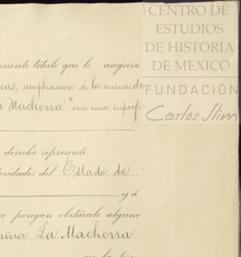 CENTRO DE
ESTUDIOS
DE HISTORIA
DE MEXICO
FUNDACIÓN
Carlos Slim
presente título que le asegura
ias, ampliacion á la mina de
a Machorra" en una superfi
derecho represente
toridades del Estado de
y á
no pongan obstáculo alguno
aña La Machorra
en la